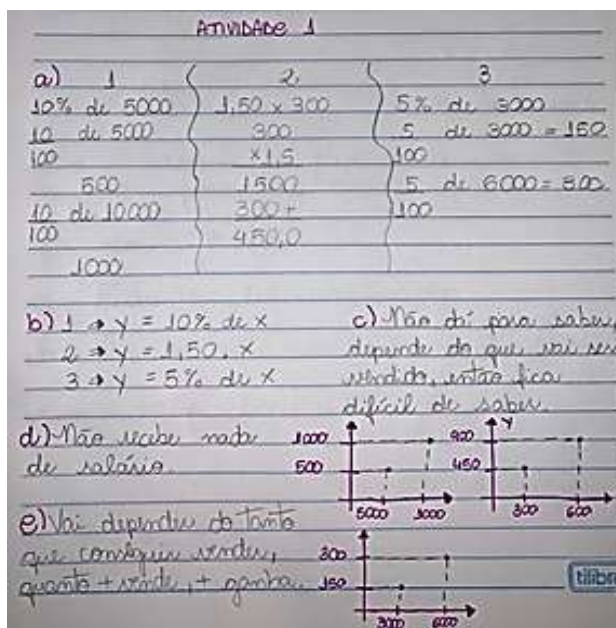 ATIVIDADE 1
a) 1
10% de 5000
10 de 5000
100
500
10 de 10000
100
1000
2
1,50 x 300
300
x 1,5
1500
300+
450,0
3
5% de 3000
5 de 3000 = 150
100
5 de 6000 = 300
100
b) 1 → y = 10% de x
2 → y = 1,50. x
3 → y = 5% de x
c) Não dá para saber,
depende do que vai ser
vendido, então fica
difícil de saber.
d) Não recebe nada
de salário.
1000
500
5000
y
900
450
300 600
e) Vai depender do tanto
que conseguir vender,
quanto + vende, + ganha.
300
150
3000 6000
tilibra